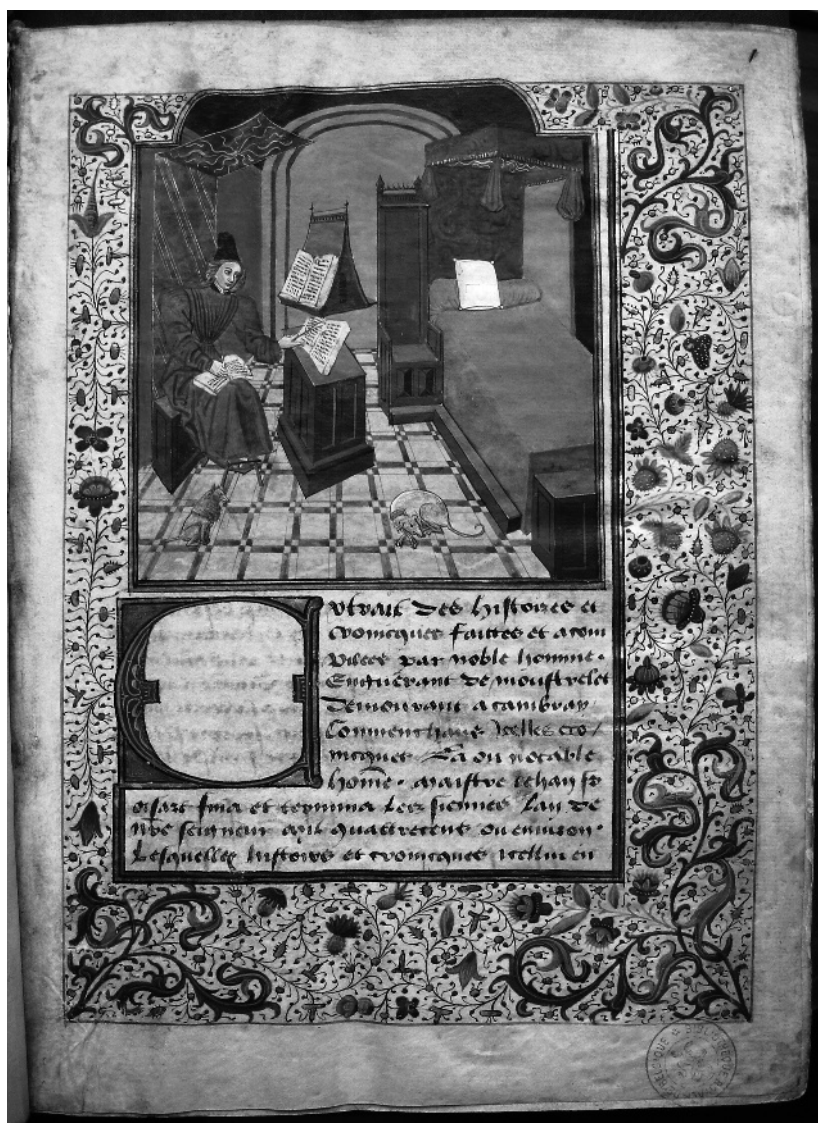 Extrait des histoires et
cronicques faittes et acom
pilees par noble homme .
Enguerant de moustrelet
demourant a cambray .
Commenchans Icelles cro /
nicques La ou notable
hom̄e . maistre Iehan fr
oisart fina et termina les siennes Lan de
n̄re seigneur mil quattrecens ou environ .
Lesquelles histoires et cronicques icellui en